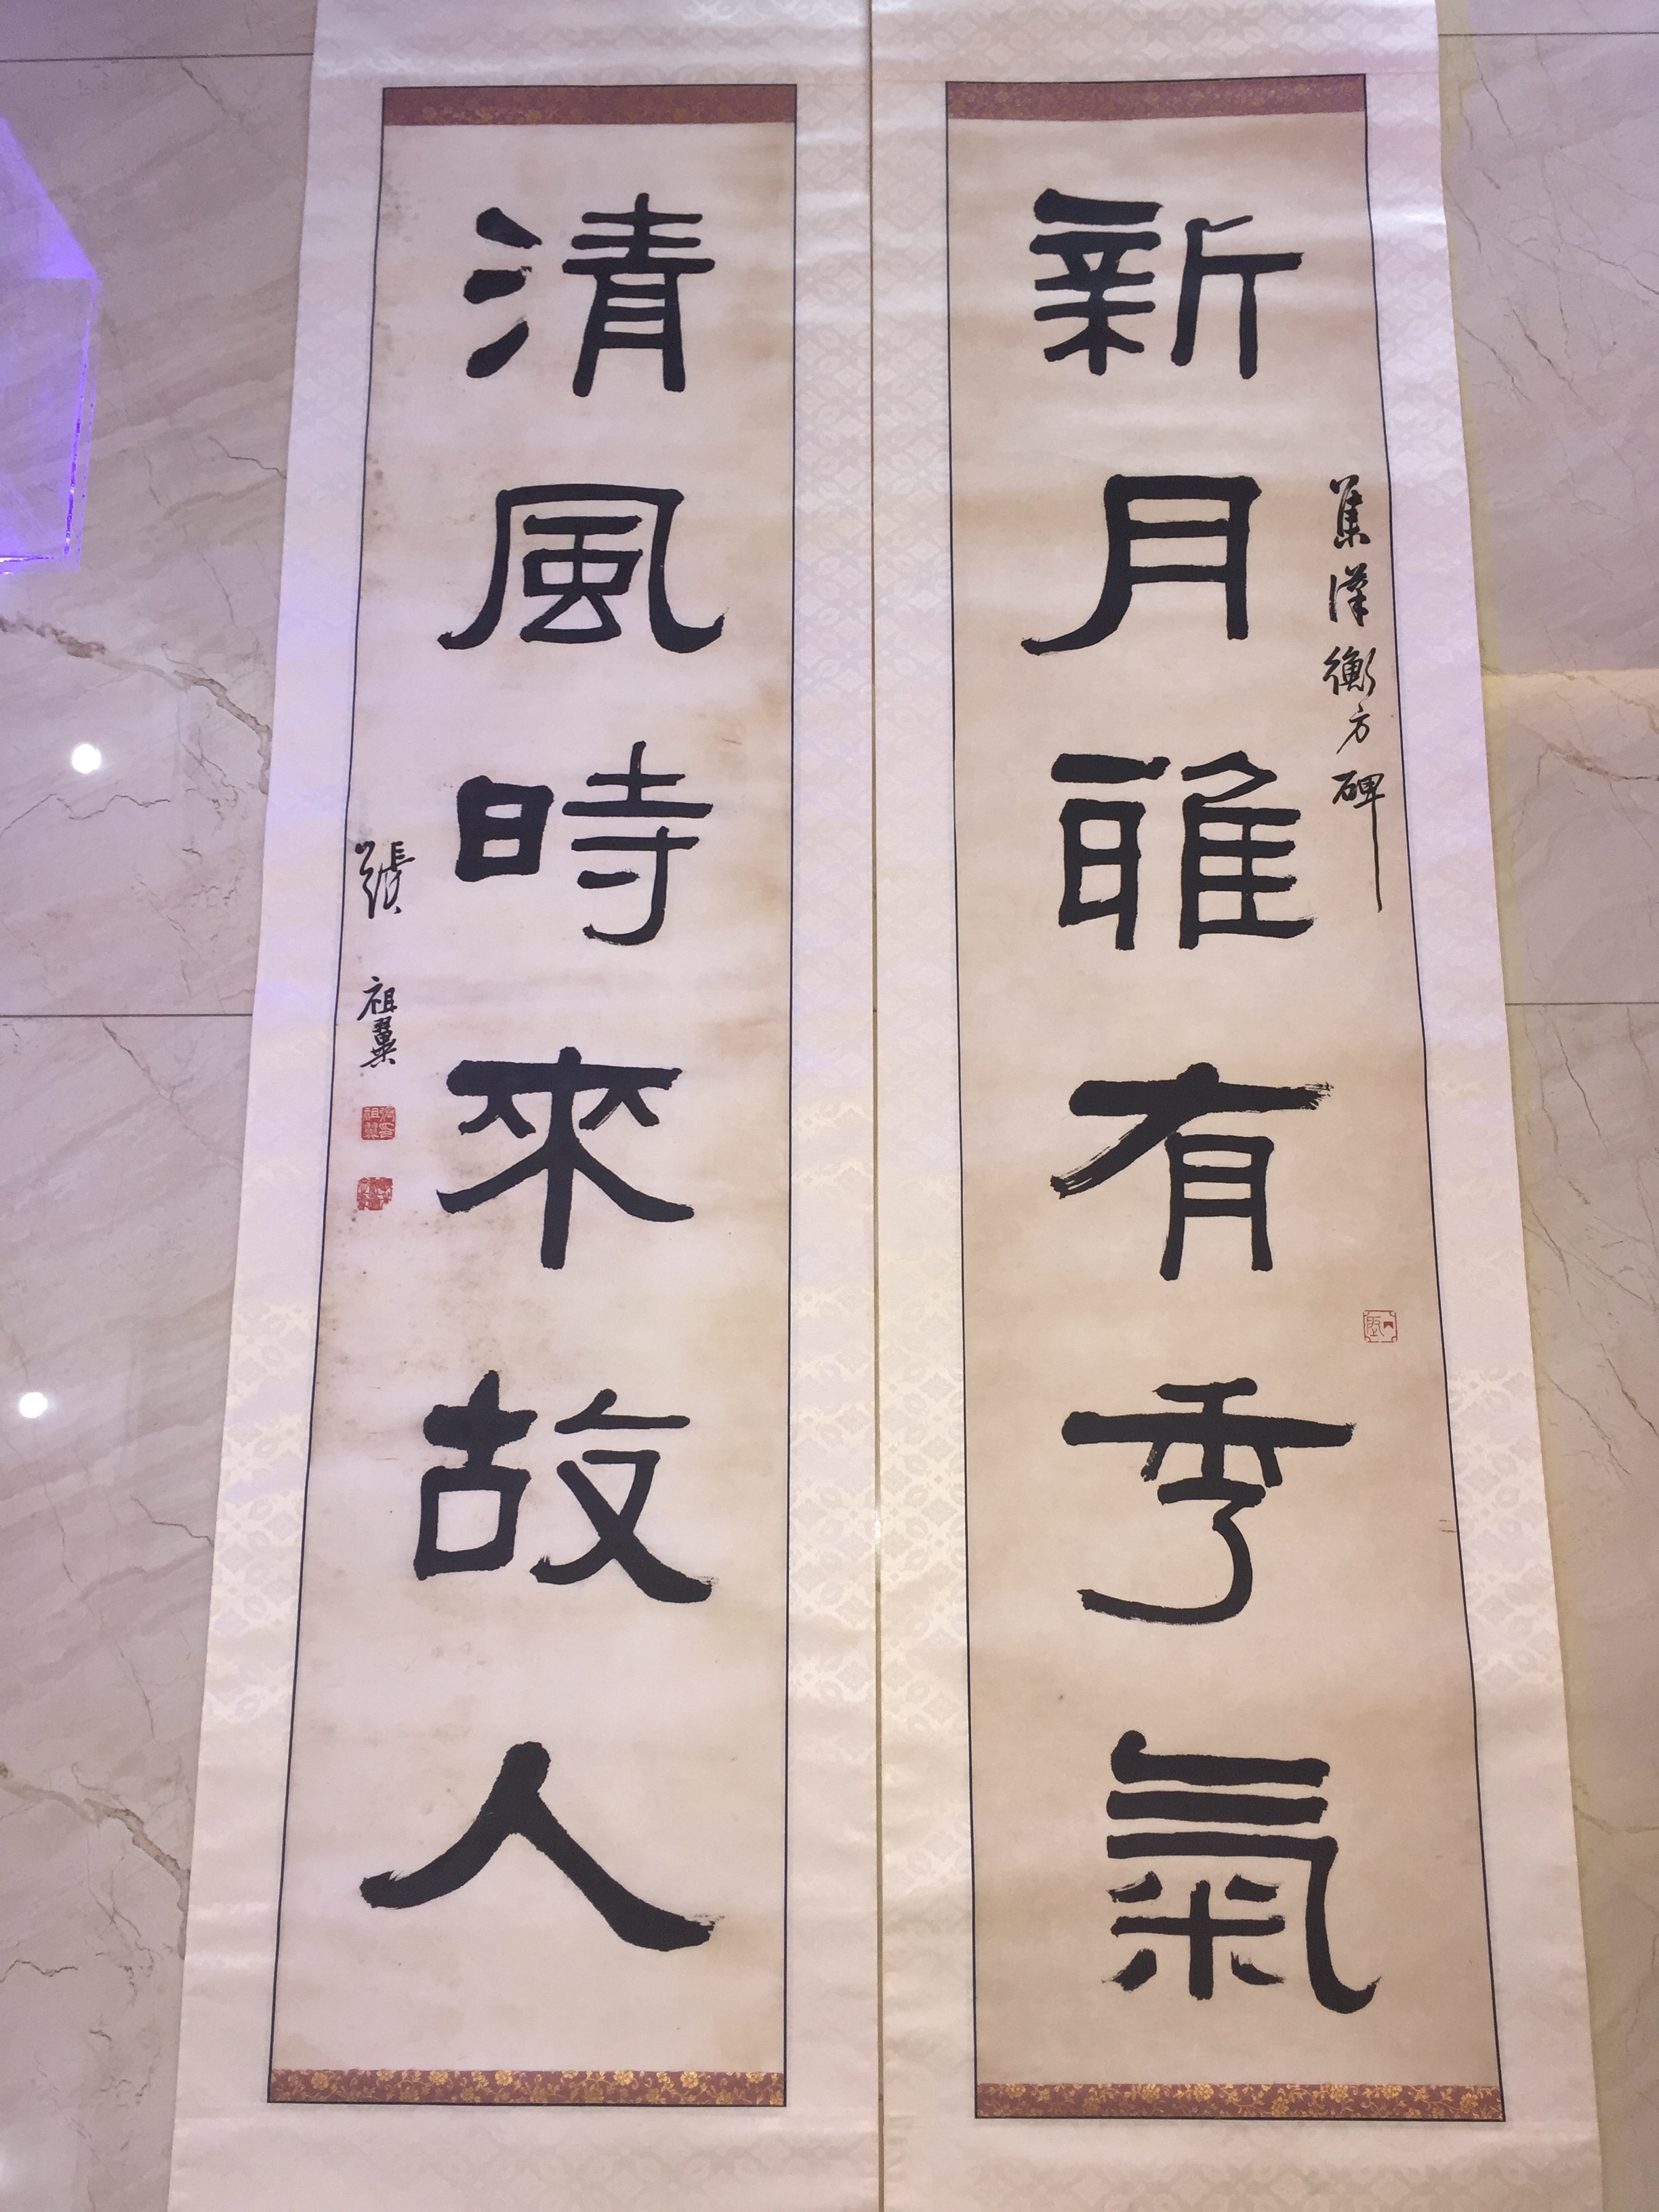 新月雅有秀氣
集漢衡方碑
清風時來故人
張祖翼